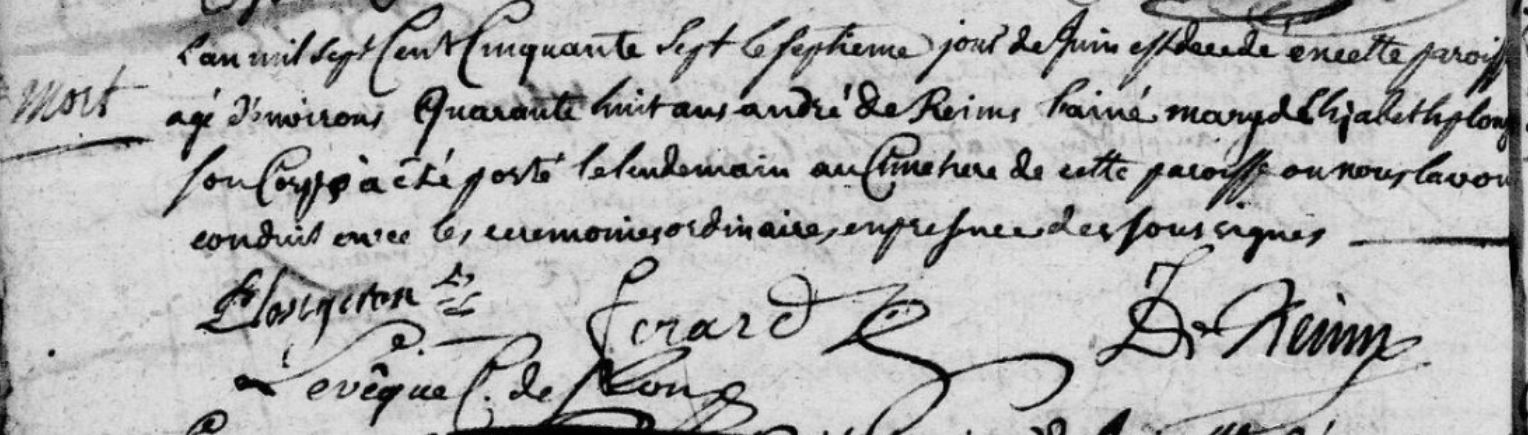 Lan mil sept Cent Cinquante sept le septieme jour de Juin est decedé en cette paroisse
mort
agé d'environs Quarante huit ans andré de Reims lainé mary de Elizabeth plong
son Corps à été porté le lendemain au Cimetiere de cette paroisse ou nous lavon
conduit avec les ceremonies ordinaires en presence des sous signés
Gerard De Reims
Levêque C. de Plong